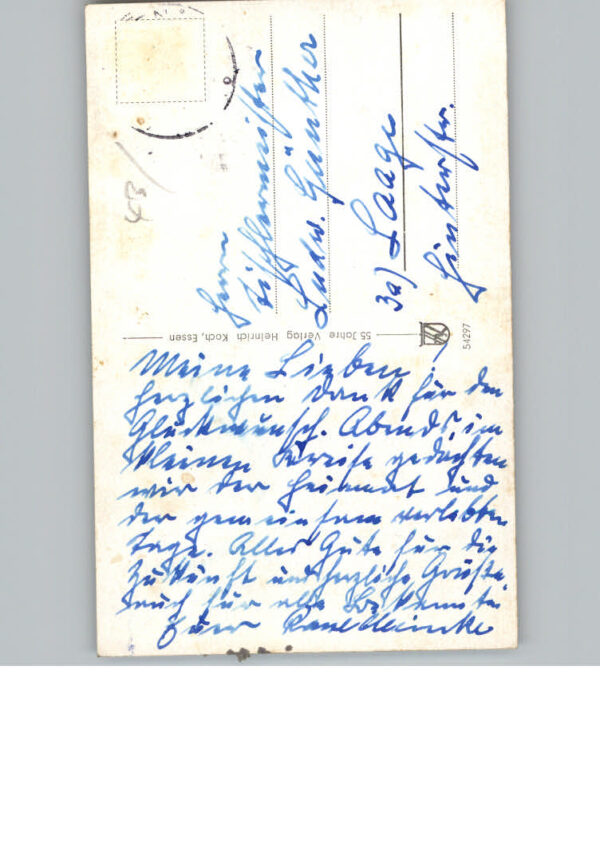 Meine Lieben!
herzlichen Dank für den
Glückwunsch. Abends im
kleinen Kreise gedachten
wir der Heimat und
der gemeinsam verlebten
Tage. Alles Gute für die
Zukunft und herzliche Grüße
auch für alle Bekannten
Euer
Herrn
Tischlermeister
Ludw. Günther
3a) Laage
Hinterstr.
55 Jahre Verlag Heinrich Koch, Essen
54297
43/